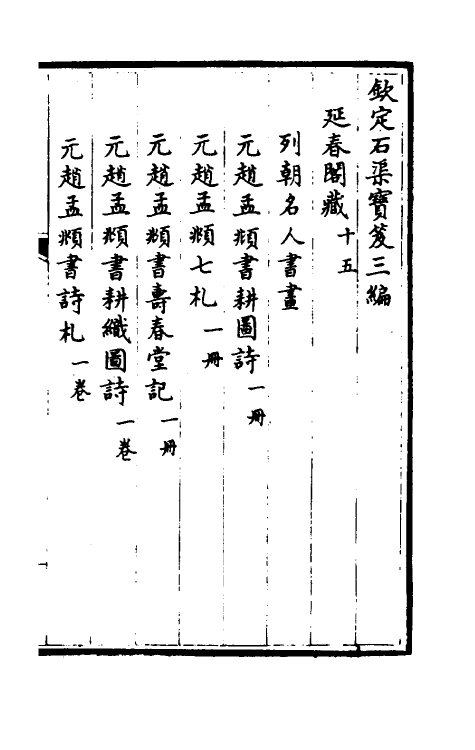 欽定石渠寶笈三編
延春閣藏十五
列朝名人書畫
元趙孟頫書耕圖詩一冊
元趙孟頫七札一冊
元趙孟頫書壽春堂記一冊
元趙孟頫書耕織圖詩一卷
元趙孟頫書詩札一卷